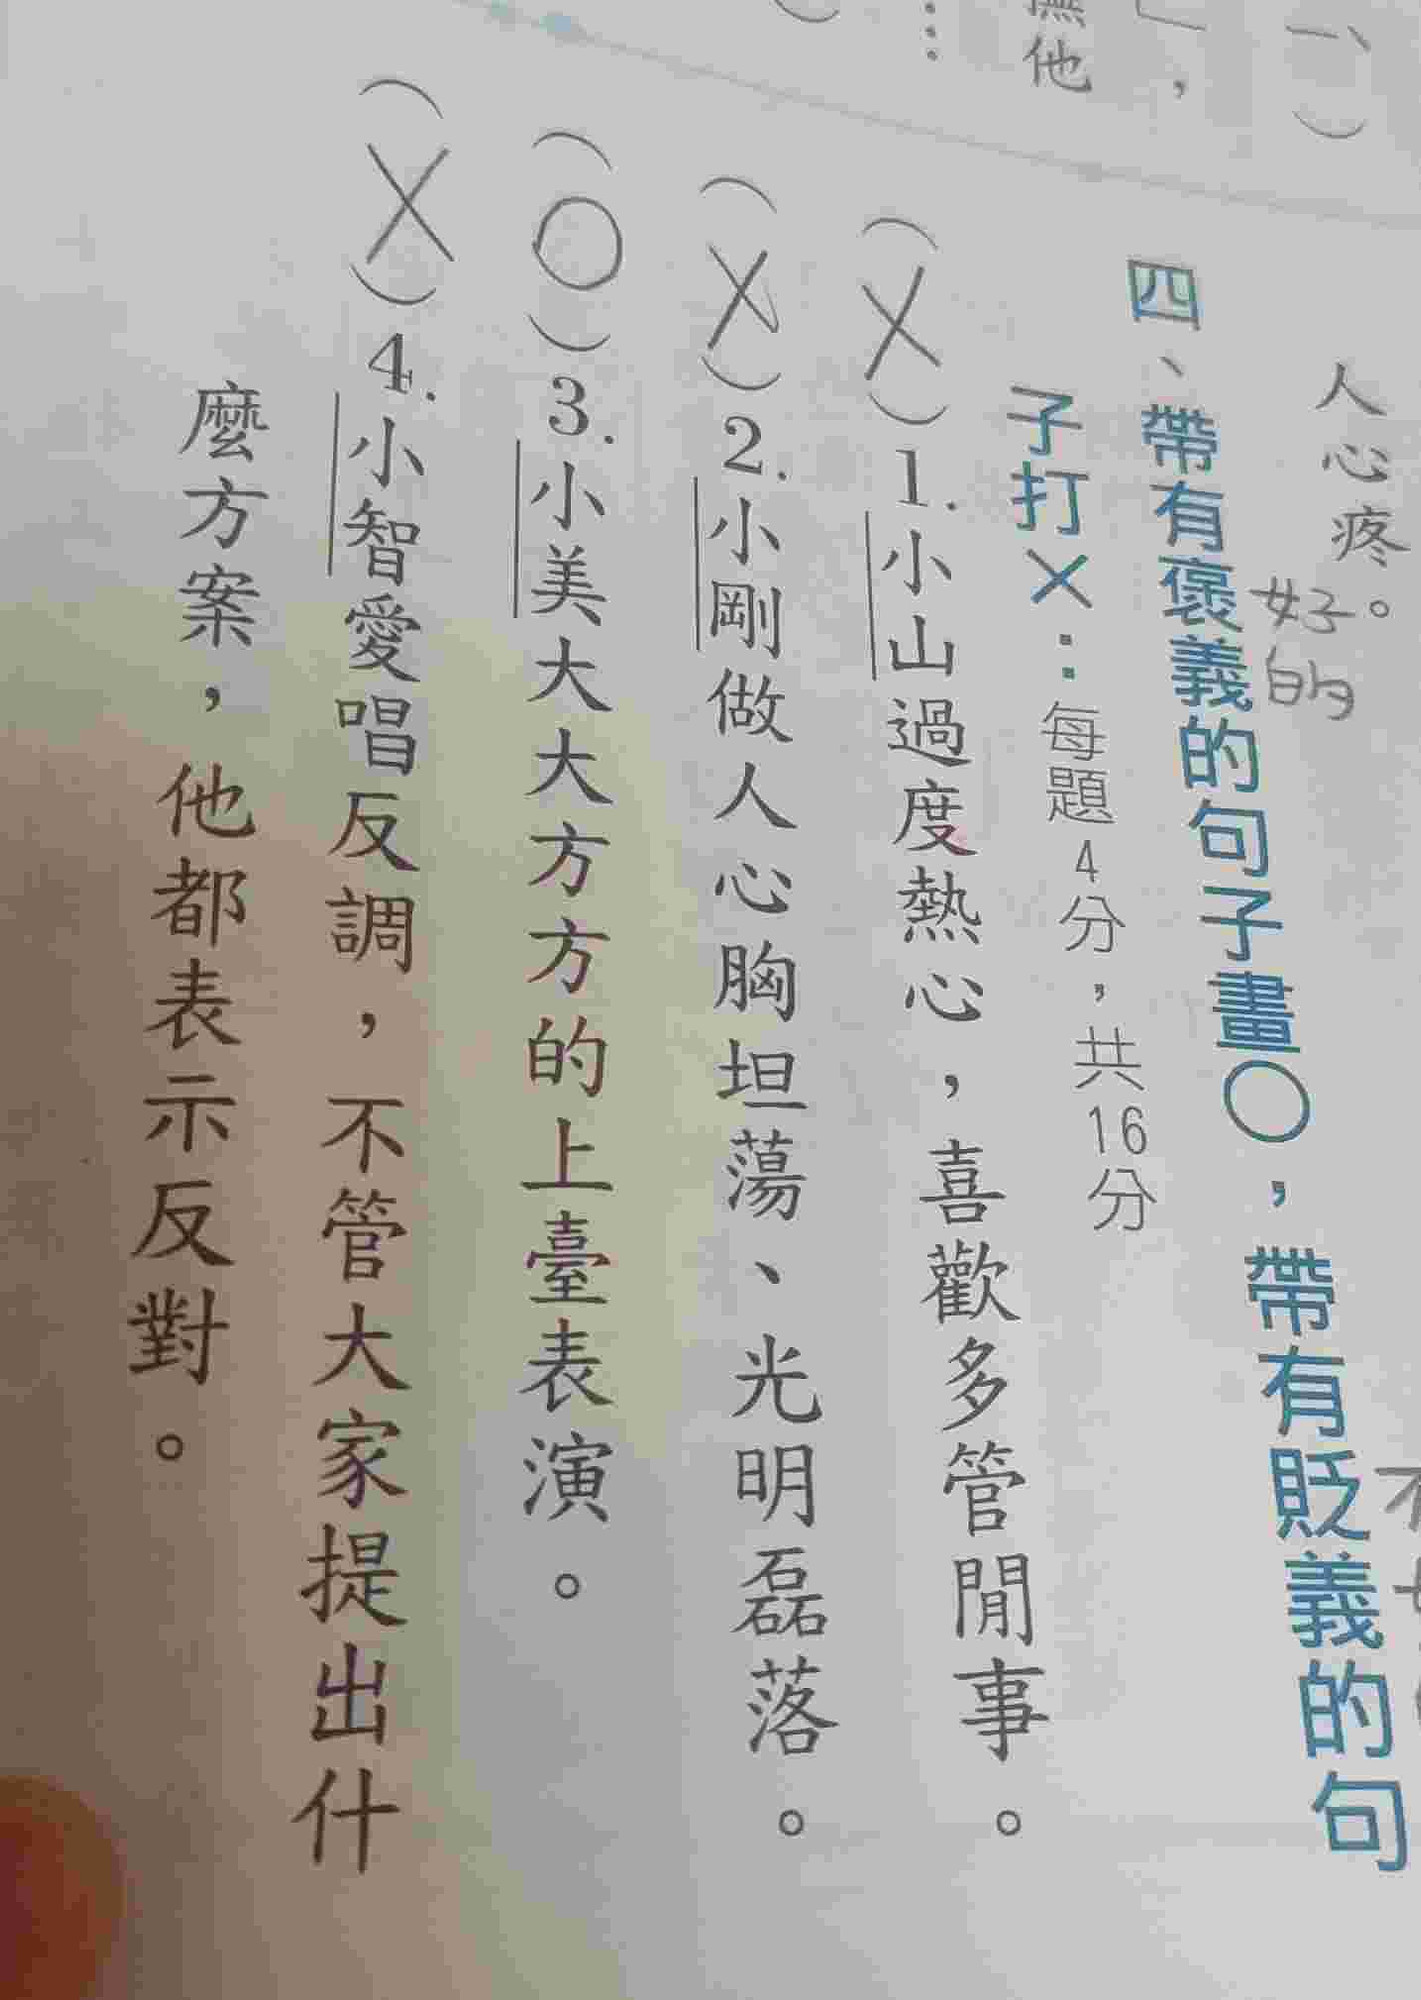 人心疼。
好的
四、帶有褒義的句子畫○，帶有貶義的句
子打×：每題4分，共16分
（X）1.小山過度熱心，喜歡多管閒事。
（X）2.小剛做人心胸坦蕩、光明磊落。
（○）3.小美大大方方的上臺表演。
（X）4.小智愛唱反調，不管大家提出什
麼方案，他都表示反對。
一、）
」，
撫他